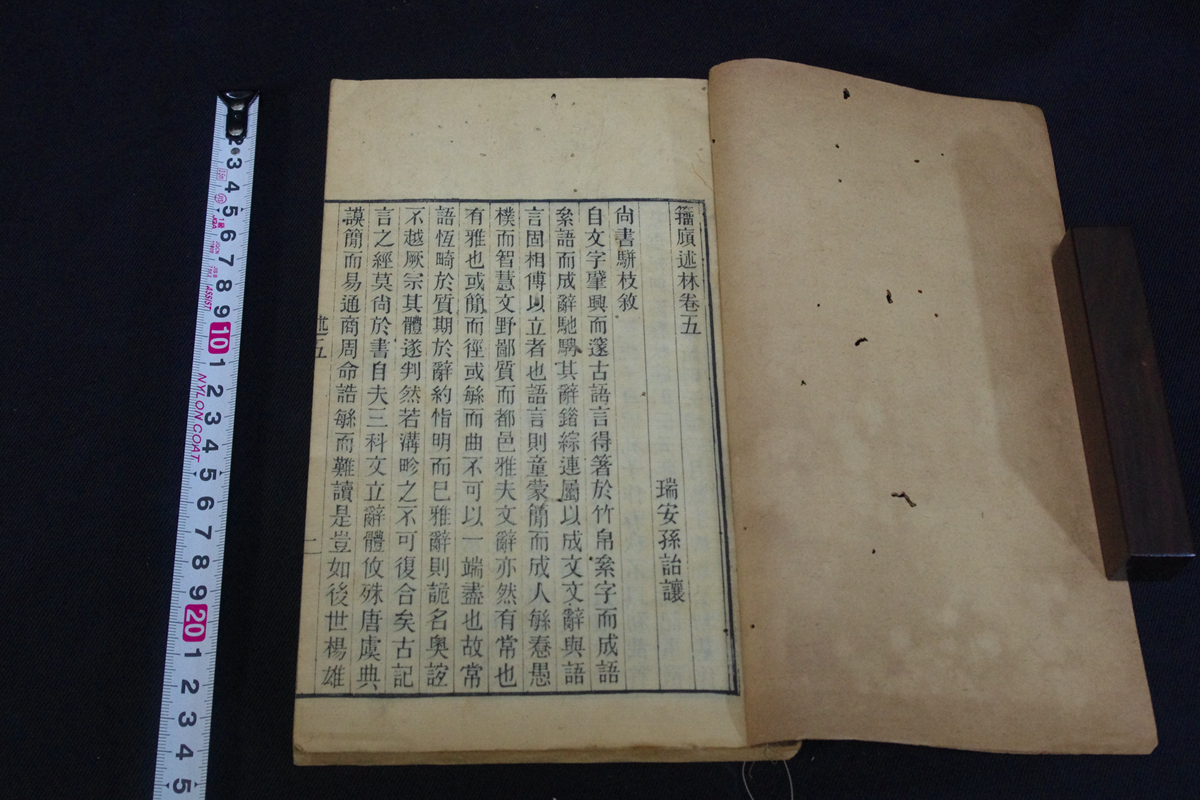 籒廎述林卷五
瑞安孫詒讓
尚書駢枝敘
自文字肈興而邃古語言得箸於竹帛絫字而成語
絫語而成辭馳騁其辭錯綜連屬以成文文辭與語
言固相傅以立者也語言則童蒙簡而成人緐惷愚
樸而智慧文野鄙質而都邑雅夫文辭亦然有常也
有雅也或簡而徑或緐而曲不可以一端盡也故常
語恆畸於質期於辭約恉明而已雅辭則詭名奧誼
不越厥宗其體遂判然若溝畛之不可復合矣古記
言之經莫尚於書自夫三科文立辭體攸殊唐虞典
謨簡而易通商周命誥緐而難讀是豈如後世楊雄
述五
一
2 3 4 5 6 7 8 9 10 1 2 3 4 5 6 7 8 9 20 1 2 3 4 5
ASSIST
NYLON COAT